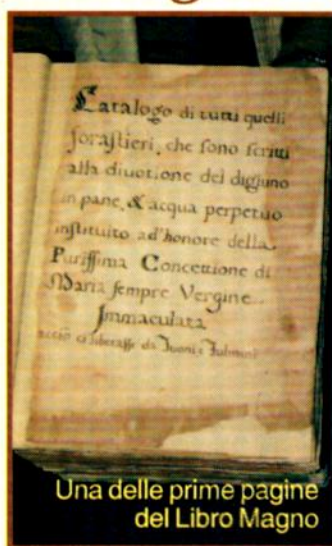 Catalogo di tutti quelli
forastieri, che sono scritti
alla divotione del diggiuno
in pane, & acqua perpetuo
instituito ad'honore della
Purissima Concettione di
Maria sempre Vergine
Immaculata
acciò ci liberasse da Tuoni e Fulmini
Una delle prime pagine
del Libro Magno